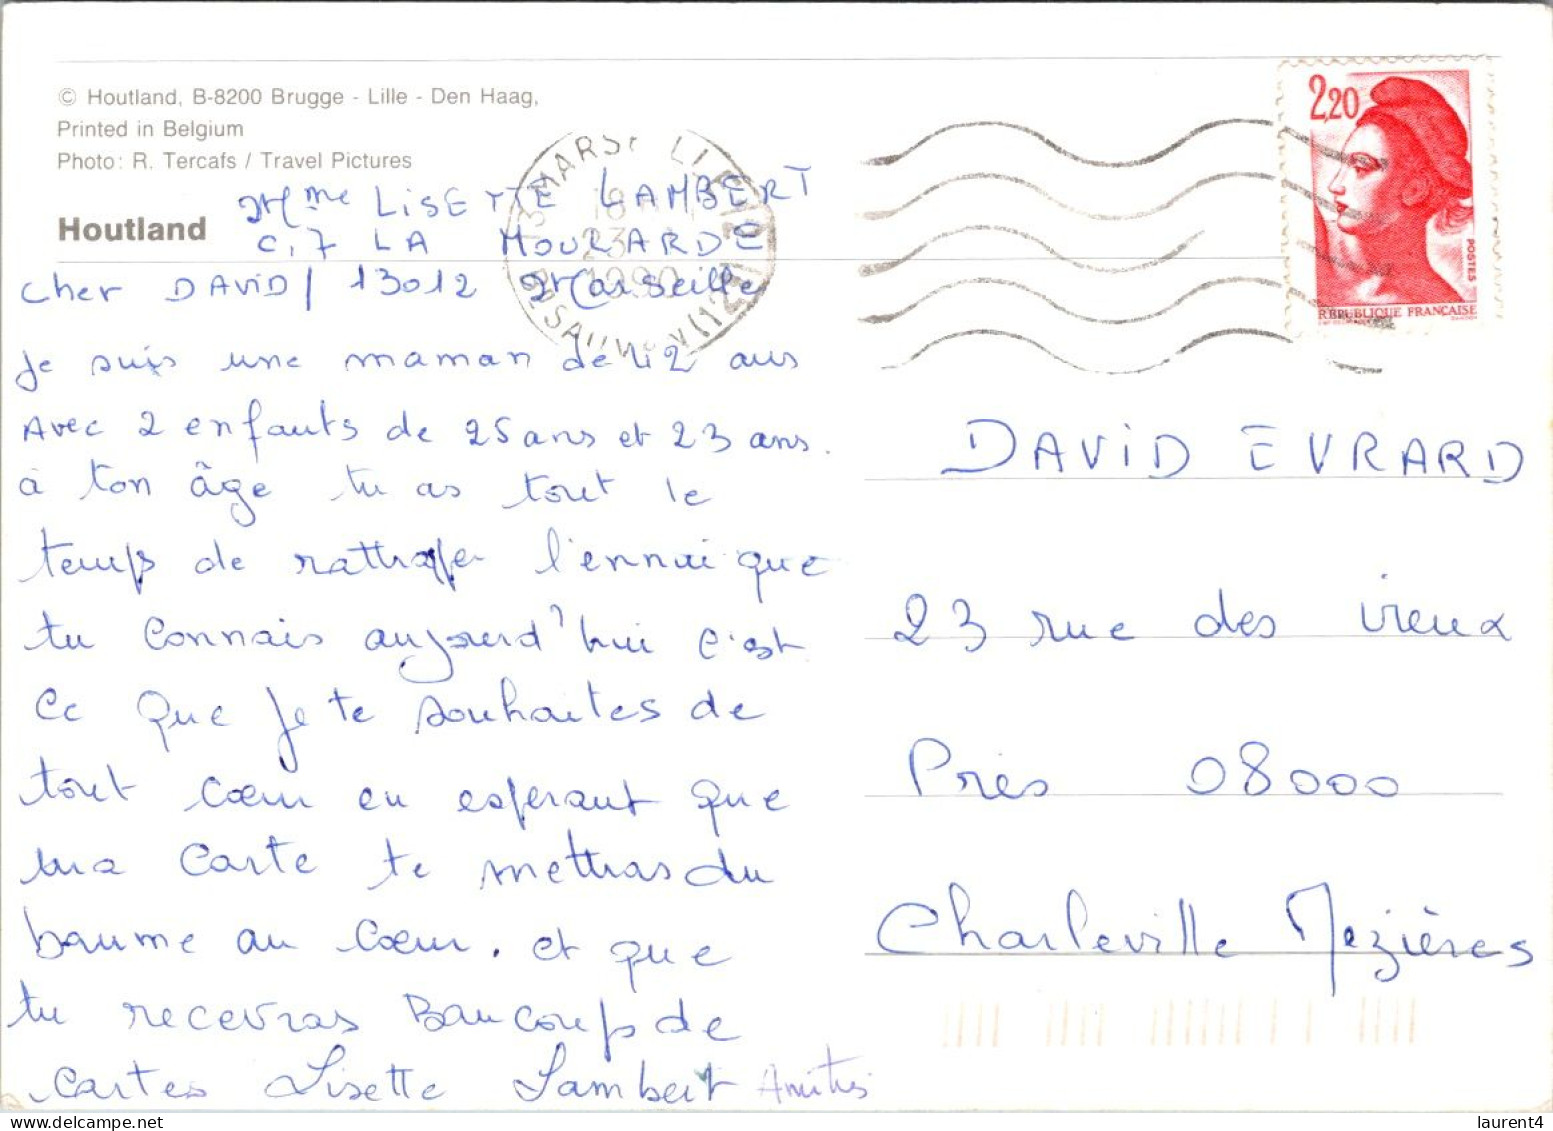 © Houtland, B-8200 Brugge - Lille - Den Haag,
Printed in Belgium
Photo: R. Tercafs / Travel Pictures
Houtland
Mme LISETTE LAMBERT
C.7 LA MOULARDE
Cher DAVID / 13012 Marseille
Je suis une maman de 42 ans
Avec 2 enfants de 25 ans et 23 ans.
à ton âge tu as tout le
temps de rattraper l'ennui que
tu connais aujourd'hui c'est
ce que je te souhaites de
tout cœur en esperant que
ma carte te mettras du
baume au cœur. et que
tu recevras Baucoups de
cartes Lisette Lambert Amitiés
2,20
POSTES
REPUBLIQUE FRANÇAISE
13 MARSEILLE 12
18
23
1990
DAVID EVRARD
23 rue des vieux
Près 08000
Charleville Mezières
laurent4